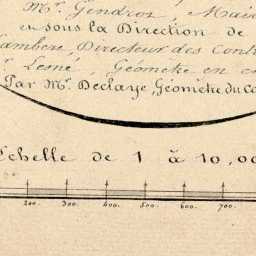 Mr. Gendroz, Mai
en sous la Direction de
Directeur des Cont
Lemé, Géomètre en c
Par Mr. Declaye, Géomètre du Ca
Echelle de 1 à 10,00
200. 300. 400. 500. 600. 700.